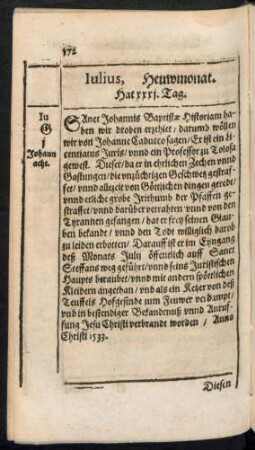 172
Iulius, Hewmonat.
Hat xxxj. Tag.
Iu
G
j
Johann
acht.
SAnct Johannis Baptistæ Historiam ha-
ben wir droben erzehlet / darumb wöllen
wir von Johanne Caducco sagen / Er ist ein li-
centiatus Juris / vnnd ein Professor zu Tolosa
gewest. Dieser / da er in ehrlichen Zechen vnnd
Gastungen / die vnzüchtigen Geschwetz gestraf-
fet / vnnd allzeit von Göttlichen dingen gerede /
vnnd etliche grobe Irrthumb der Pfaffen ge-
straffet / vnnd darüber verrahten / vnnd von den
Tyrannen gefangen / hat er frey seinen Glau-
ben bekandt / vnnd den Todt williglich darob
zu leiden erbotten / Darauff ist er im Eyngang
deß Monats Julij öffentlich auff Sanct
Steffans weg geführt / vnnd seins Juristischen
Hauptes beraubet / vnnd mit andern spöttlichen
Kleidern angethan / vnd als ein Ketzer von deß
Teuffels Hofgesinde zum Feuwer verdampt /
vnd in bestendiger Bekandenuß vnnd Anruf-
fung Jesu Christi verbrandt worden / Anno
Christi 1533.
Diesen